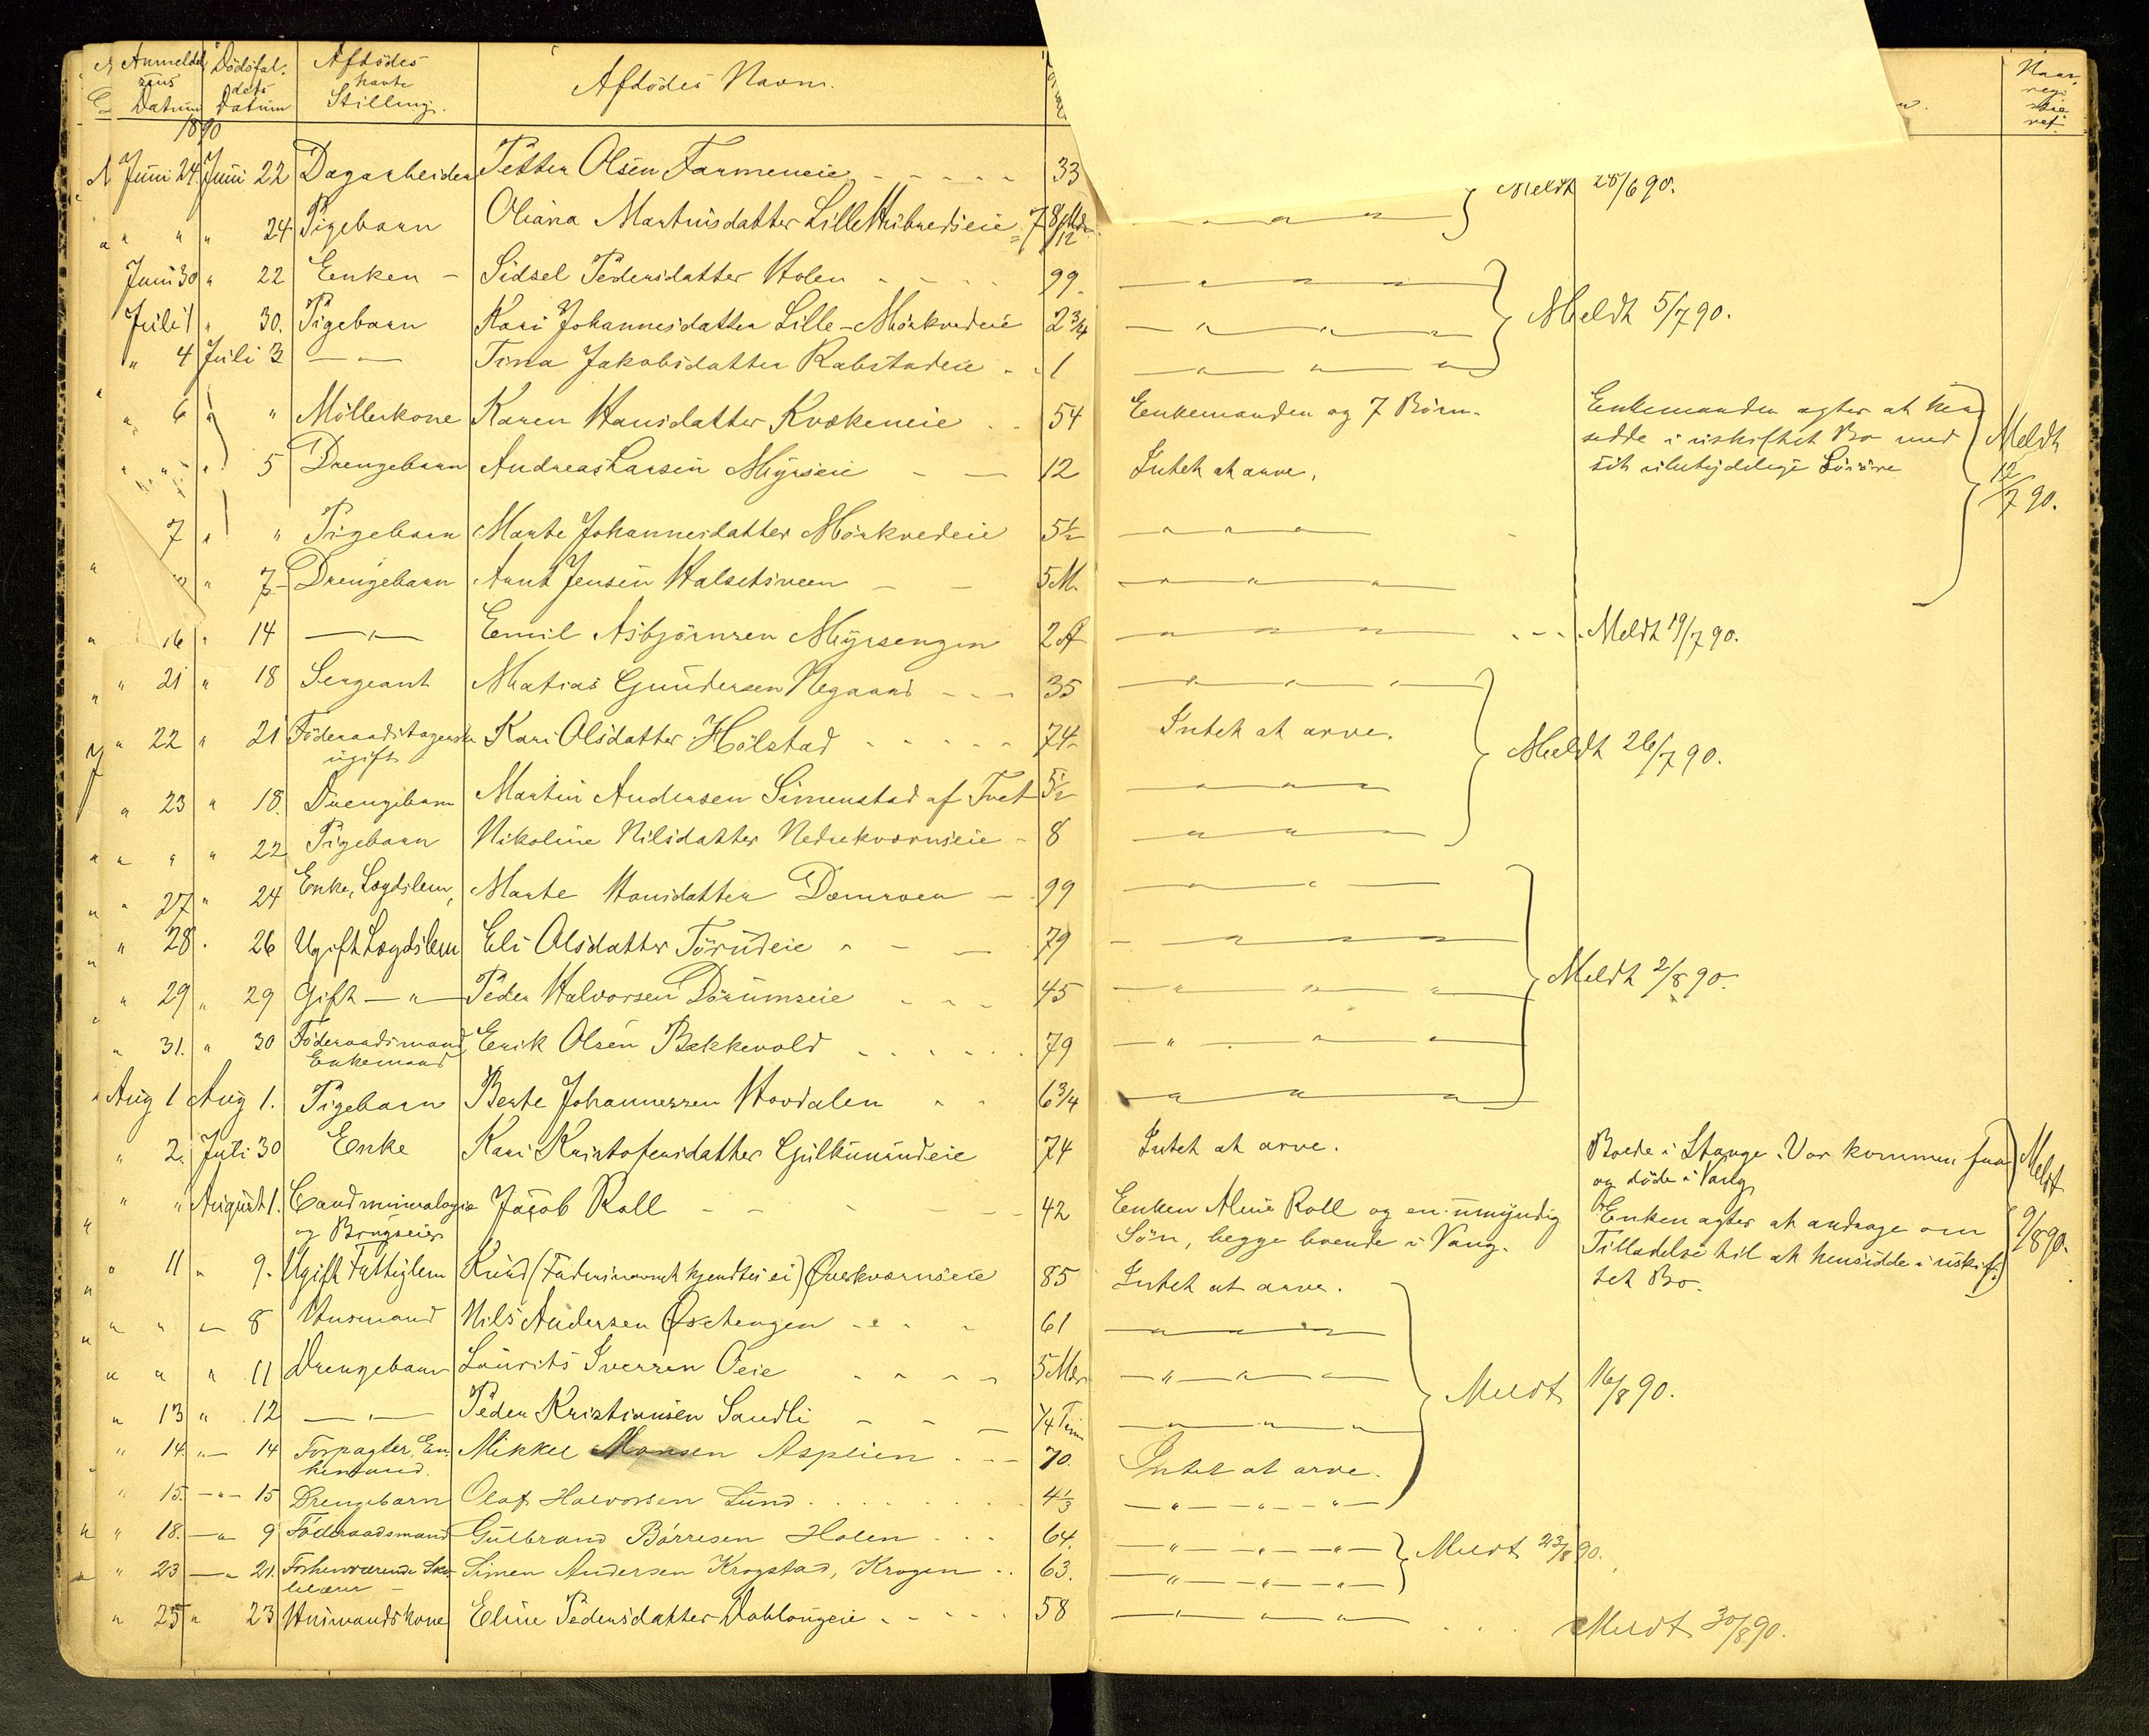 Anmeldel sens Datum Dödsfal. dets Datum Afdödes havte Stilling. Afdödes Navn. Naar regi stre ret.
1890
Juni 24. Juni 22 Dagarbeider Petter Olsen Farmeneie - - - - - 33
" " " 24 Pigebarn Oliana Martinsdatter Lille Hubredseie = 7 8/12 Mdr. — " — " — " — Meldt 28/6 90.
Juni 30 " 22 Enken - Sidsel Pedersdatter Holen - - - - 99. — " — " — " —
Juli 1 " 30. Pigebarn Kari Johannesdatter Lille-Mörkvedeie 2 3/4 — " — " — " — Meldt 5/7 90.
" 4 Juli 3 — " — Tina Jakobsdatter Rabstadeie - - 1 — " — " — " —
" 6 " " Möllerkone Karen Hansdatter Kvækeneie - - 54 Enkemanden og 7 Börn. Enkemanden agter at hen
sidde i uskiftet Bo med Meldt
" " " 5 Drengebarn Andreas Larsen Myrseie - — 12 Intet at arve. sit ubetydelige Lösöre 12/7 90.
7 " " Pigebarn Marte Johannesdatter Mörkvedeie 5 1/2 — " — " — " —
" 7 Drengebarn Arnt Jensen Halsetsveen - - 5 M. — " — " — " —
" 16 " 14 — " — Emil Asbjörnsen Myrsengen 2 A — " — " — " — - - - Meldt 19/7 90.
" 21 " 18 Sergeant Matias Gundersen Negaard - - - 35 — " — " — " —
" 22 " 21 Föderaadstagerske ugift Kari Olsdatter Hölstad - - - - - 74 Intet at arve. Meldt 26/7 90.
" 23 " 18. Drengebarn Martin Andersen Simenstad af Tvet 5 1/2 — " — " — " —
" " " 22 Pigebarn Nikoline Nilsdatter Nedrekværnseie - 8 — " — " — " —
" 27 " 24 Enke, Lægdslem, Marte Hansdatter Domroen - 99 — " — " —
" 28 " 26 Ugift Lægdslem Eli Olsdatter Törudeie " - — 79 — " — " — " —
" 29 " 29 Gift — " — Peder Halvorsen Dörumseie - - - 45 — " — " — " — Meldt 2/8 90.
" 31. " 30 Föderaadsmand Enkemand Erik Olsen Bækkevold - - - - - - 79 — " — " — " —
Aug 1 Aug 1. Pigebarn Berte Johannessen Hovdalen " " 6 3/4 — " — " — " —
" 2. Juli 30 Enke Kari Kristofersdatter Gulkunrudeie 74 Intet at arve. Boede i Stange. Var kommen paa
og döde i Vang Meldt
" " August 1. Cand mineralogiæ og Brugseier Jacob Roll - - - - - 42 Enken Aline Roll og en umyndig Enken agter at andrage om 9/8 90.
Sön, begge boende i Vang. Tilladelse til at hensidde i uskif-
" 11 " 9. Ugift Fattiglem Knud (Fadersnavnet kjendtes ei) Överkværnseie 85 Intet at arve. tet Bo.
" " " 8 Husmand Nils Andersen Östengen - - - - 61 — " — " — " —
" " " 11 Drengebarn Laurits Iversen Oeie - - - - 5 Mdr — " — " — " — Meldt 16/8 90.
" 13 " 12 — " — Peder Kristiansen Sandli - - - 1/4 Time — " — " — " —
" 14. " 14 Forpagter, En kemand. Mikkel Monsen Asplien . - - 70. Intet at arve.
" 15. — " — 15 Drengebarn Olaf Halvorsen Lund . . . . . . . 4 1/3 — " — " — " —
" 18. — " 9 Föderaadsmand Gulbrand Börresen Holen . . . 64. — " — " — " — Meldt 23/8 90.
" 23 — " 21. Forhenværende Sko lelærer Simen Andersen Krogstad, Krogen . . 63. — " — " — " —
" 25 " 23 Husmandskone Eline Pedersdatter Dahlougeie - - - - - 58 — " — " — " — . . . Meldt 30/8 90.